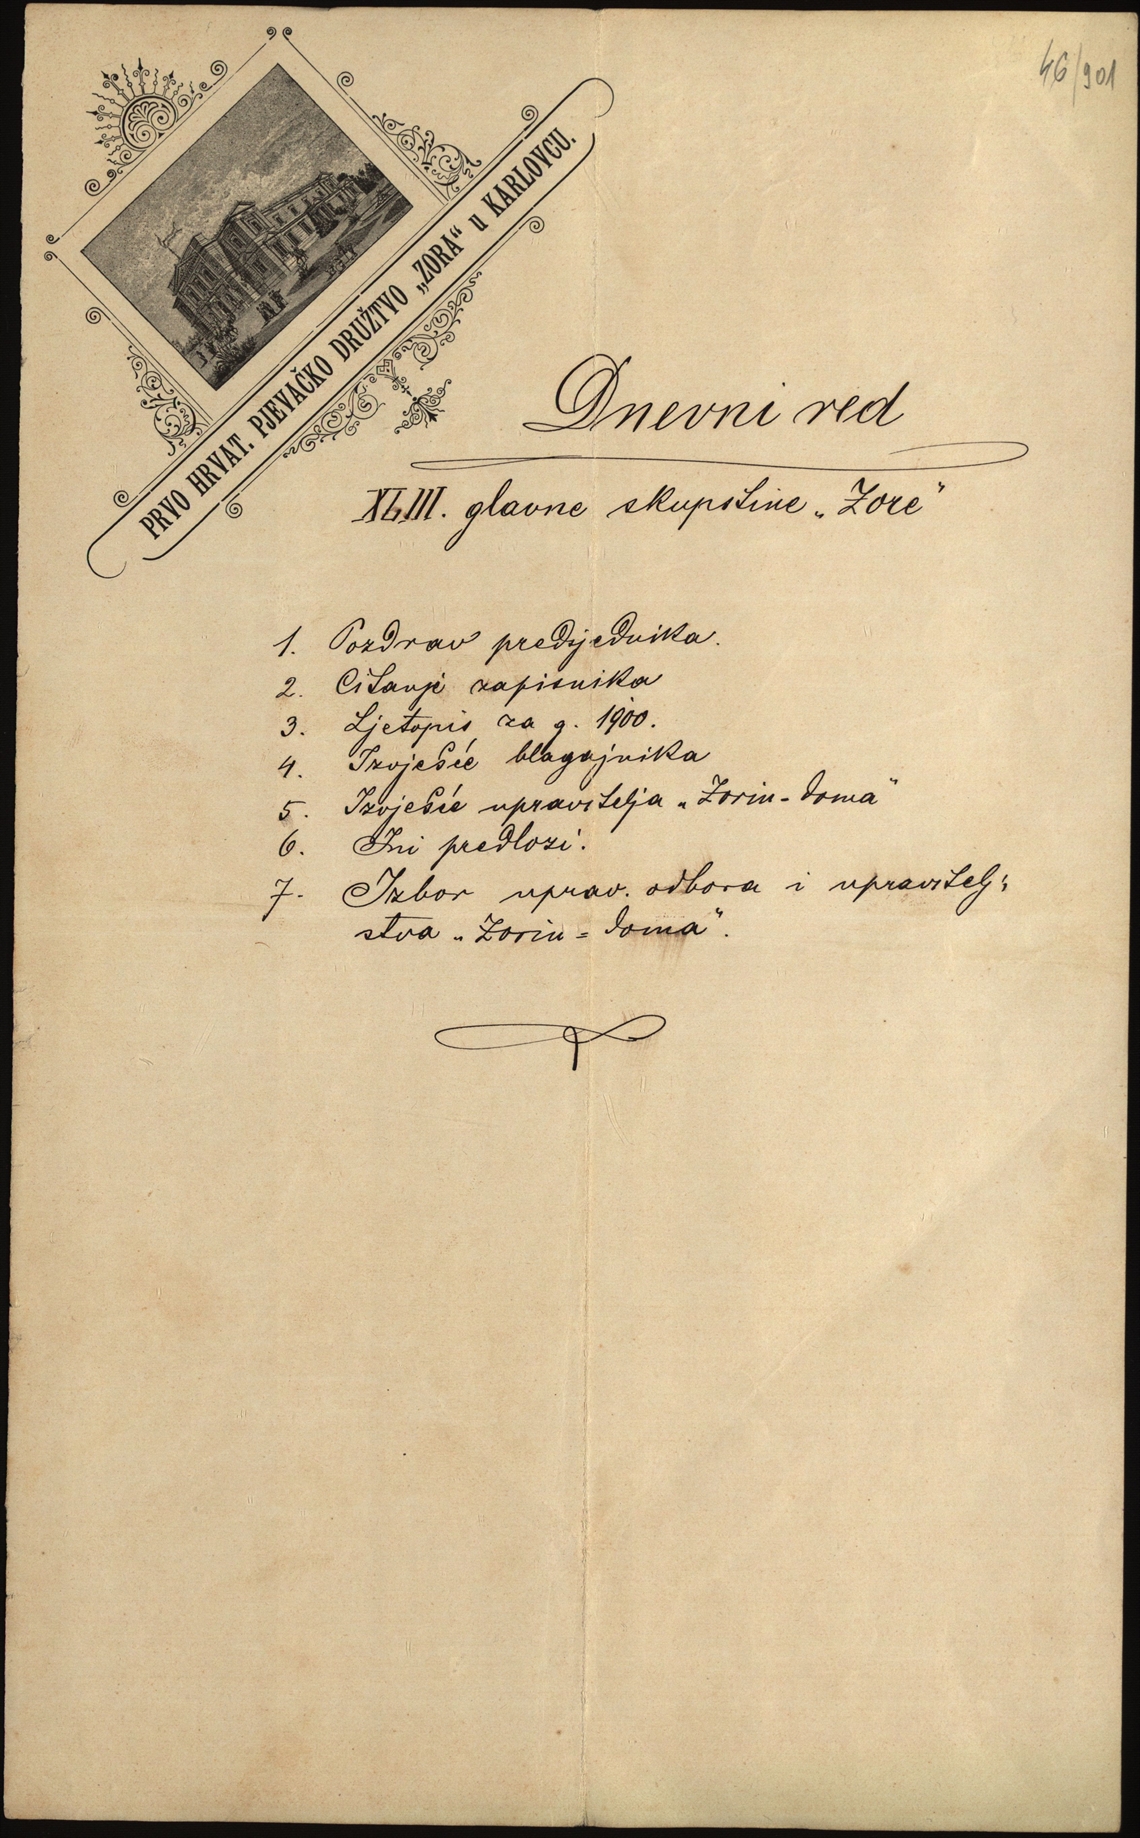 46/901
PRVO HRVAT. PJEVAČKO DRUŽTVO „ZORA“ u KARLOVCU.
Dnevni red
XLIII. glavne skupštine „Zore“
1. Pozdrav predsjednika.
2. Čitanje zapisnika
3. Ljetopis za g. 1900.
4. Izvješće blagajnika
5. Izvješće upravitelja „Zorin-doma“
6. Ini predlozi.
7. Izbor uprav. odbora i upravitelj-
stva „Zorin-doma“.